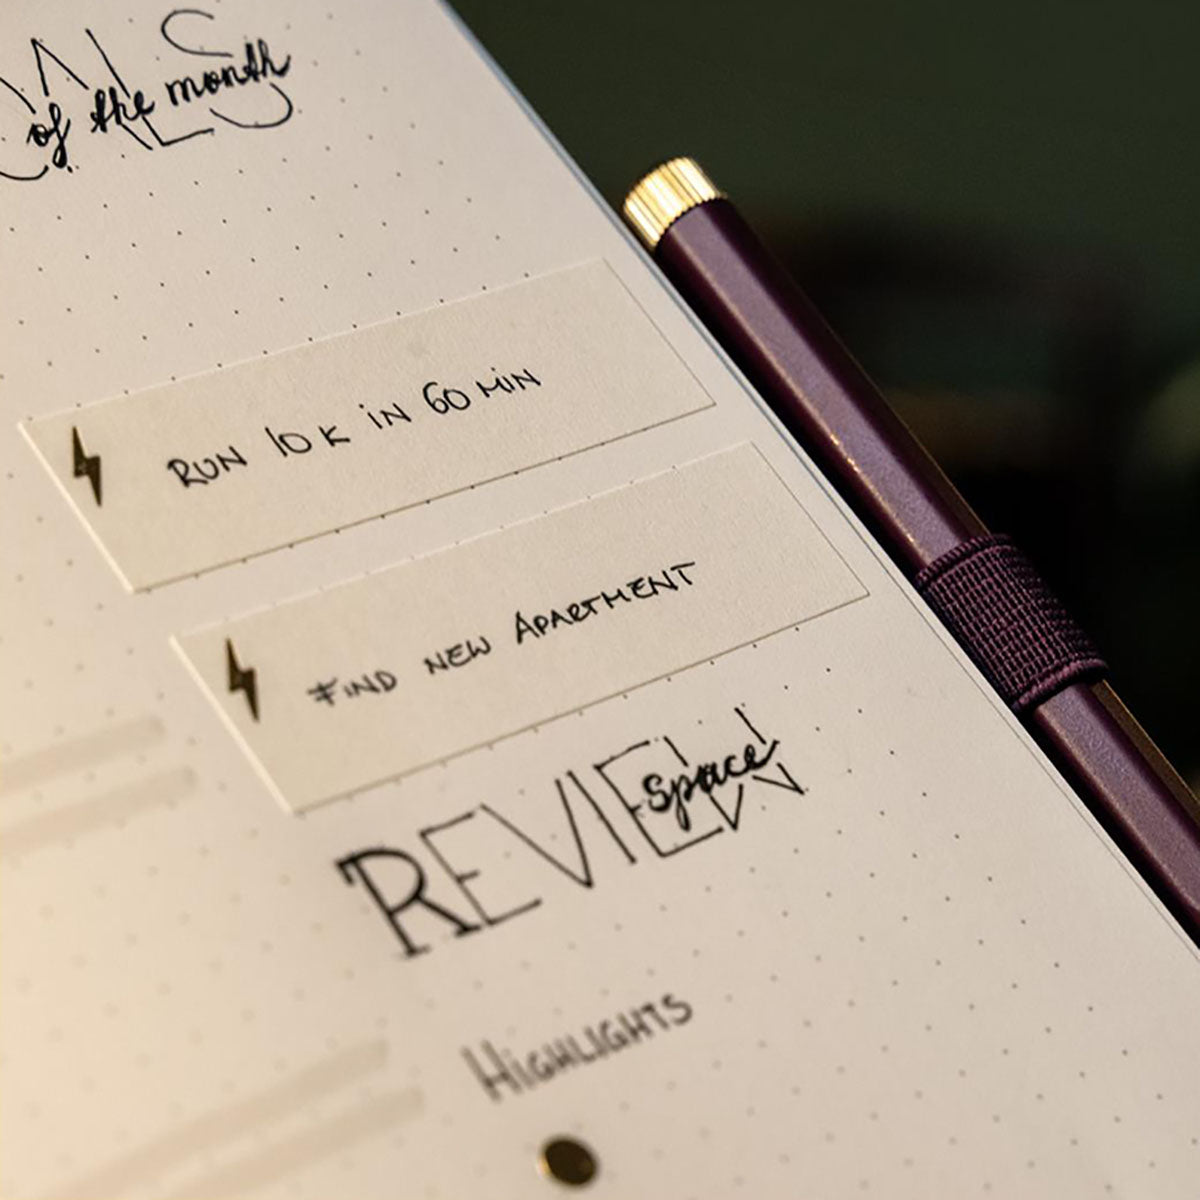 of the month
RUN 10K IN 60 MIN
FIND NEW APARTMENT
REVIEW
space
HIGHLIGHTS